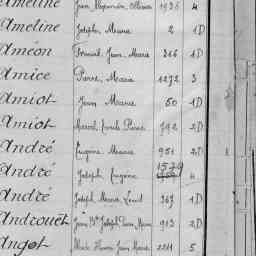 Ameline Jean 1936 4
Ameline Joseph Marie 2 1D
Améon Jean Marie 316 1D
Amice Pierre Marie 1272 3
Amiot Jean Marie 60 1D
Amiot Marcel Pierre 792 2D
André Eugène Maurice 951 2D
André Joseph Eugène 1579 4
André Joseph Marie Louis 367 1D
Androuët Jean Bte Joseph Marie 913 2D
Angot Marie Jean Marie 2211 5